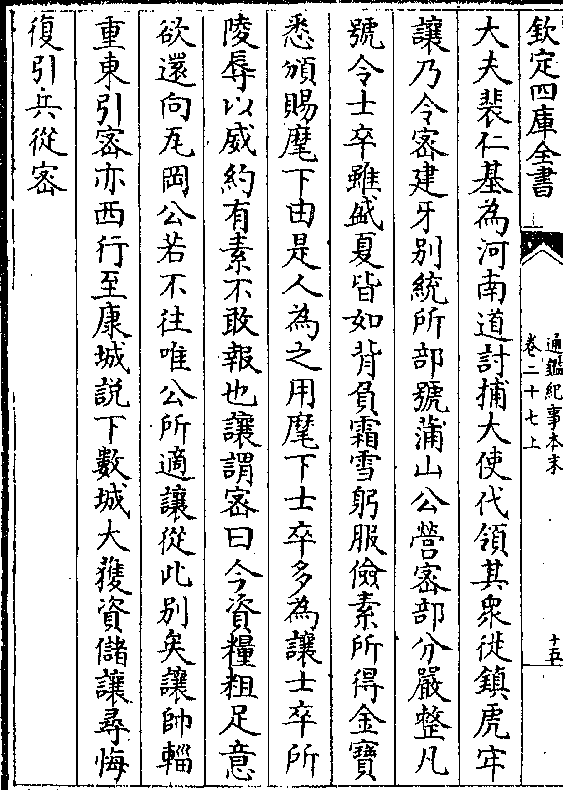 欽定四庫全書
通鑑紀事本末
卷二十七上
十五
大夫裴仁基為河南道討捕大使代領其衆徙鎮虎牢
讓乃令密建牙别統所部號蒲山公營密部分嚴整凡
號令士卒雖盛夏皆如背負霜雪躬服儉素所得金寶
悉頒賜麾下由是人為之用麾下士卒多為讓士卒所
陵辱以威約有素不敢報也讓謂密曰今資糧粗足意
欲還向瓦岡公若不往唯公所適讓從此别矣讓帥輜
重東引密亦西行至康城説下數城大獲資儲讓尋悔
復引兵從密